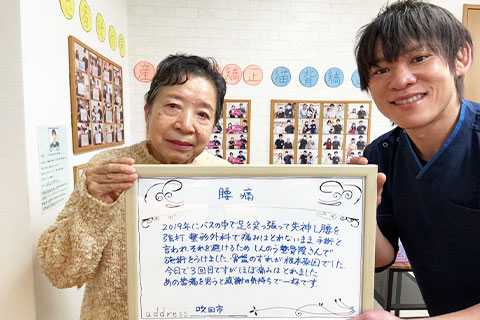 産
矯正
猫背
腰痛
2019年にバスの中で足を突っ張って失神し腰を
強打.整形外科で痛みはとれないまま手術と
言われそれを避けるため しんのう整骨院さんで
施術をうけました.骨盤のずれが根本原因でした.
今日で3回目ですがほぼ痛みはとれました
あの苦痛を思うと感謝の気持ちで一杯です
address 吹田市